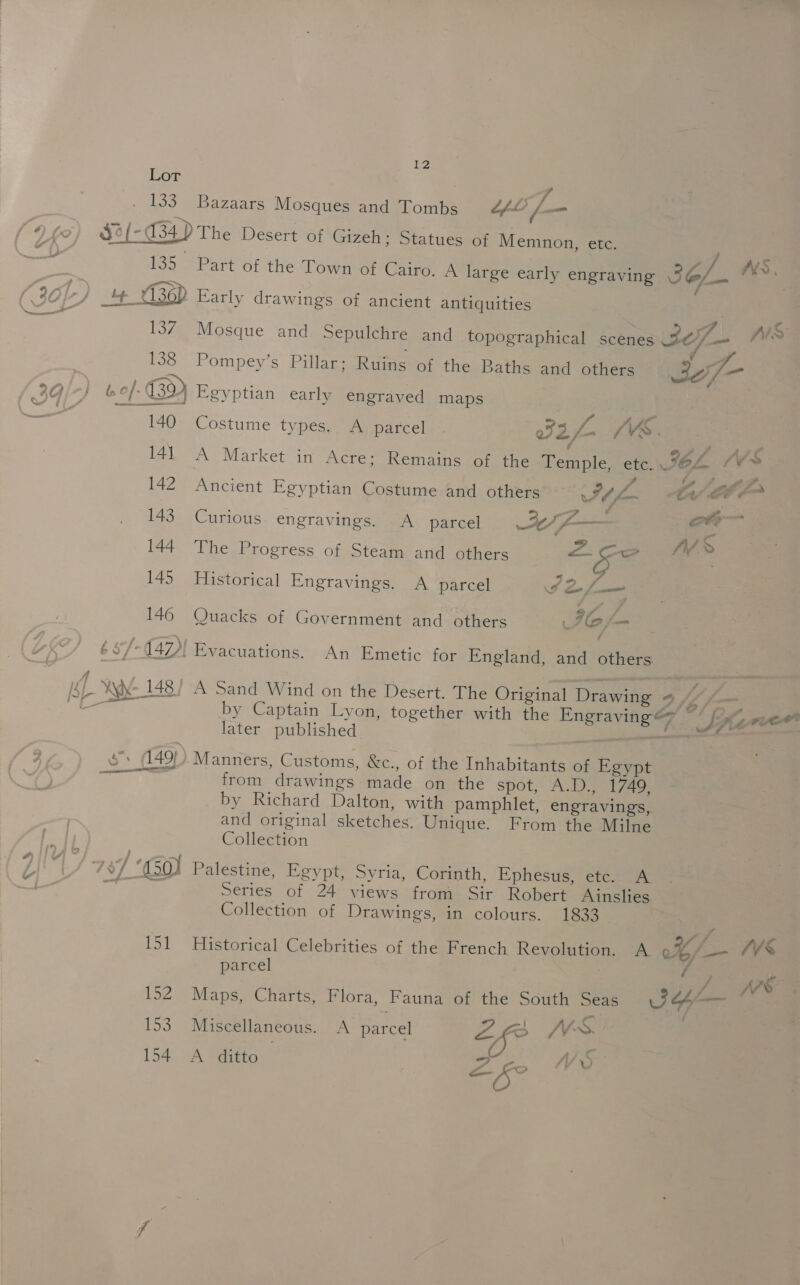 12
Lot
133 Bazaars Mosques and Tombs
134 The Desert of Gizeh; Statues of Memnon, etc.
135 Part of the Town of Cairo. A large early engraving 36/- NS.
136 Early drawings of ancient antiquities
137 Mosque and Sepulchre and topographical scenes 30/- NS
138 Pompey's Pillar; Ruins of the Baths and others 30/-
139 Egyptian early engraved maps
140 Costume types. A parcel 32/- NS.
141 A Market in Acre; Remains of the Temple, etc. 36/- NS
142 Ancient Egyptian Costume and others
143 Curious engravings. A parcel
144 The Progress of Steam and others NS
145 Historical Engravings. A parcel 32/-
146 Quacks of Government and others 36/-
65/- 147 Evacuations. An Emetic for England, and others
148 A Sand Wind on the Desert. The Original Drawing
by Captain Lyon, together with the Engraving
later published
149 Manners, Customs, &c., of the Inhabitants of Egypt
from drawings made on the spot, A.D., 1749,
by Richard Dalton, with pamphlet, engravings,
and original sketches. Unique. From the Milne
Collection
150 Palestine, Egypt, Syria, Corinth, Ephesus, etc. A
Series of 24 views from Sir Robert Ainslies
Collection of Drawings, in colours. 1833
151 Historical Celebrities of the French Revolution. A NS
parcel
152 Maps, Charts, Flora, Fauna of the South Seas 34/- NS
153 Miscellaneous. A parcel NS.
154 A ditto NS